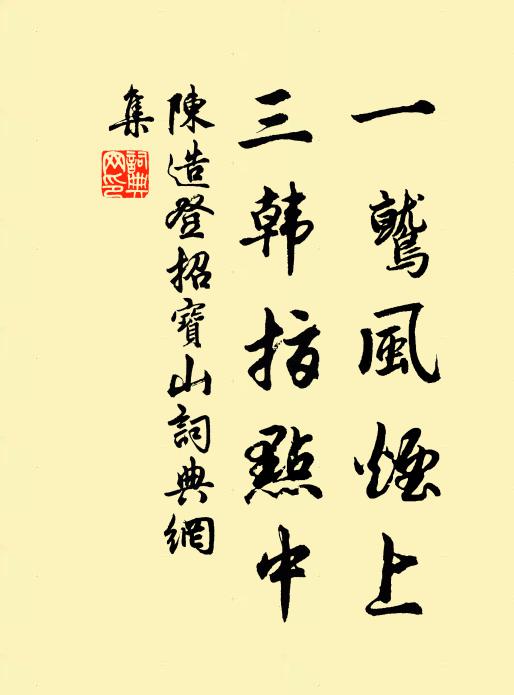 一鷲風煙上
三韩指點中
陳造登招寶山詞典網
集
詞典網印